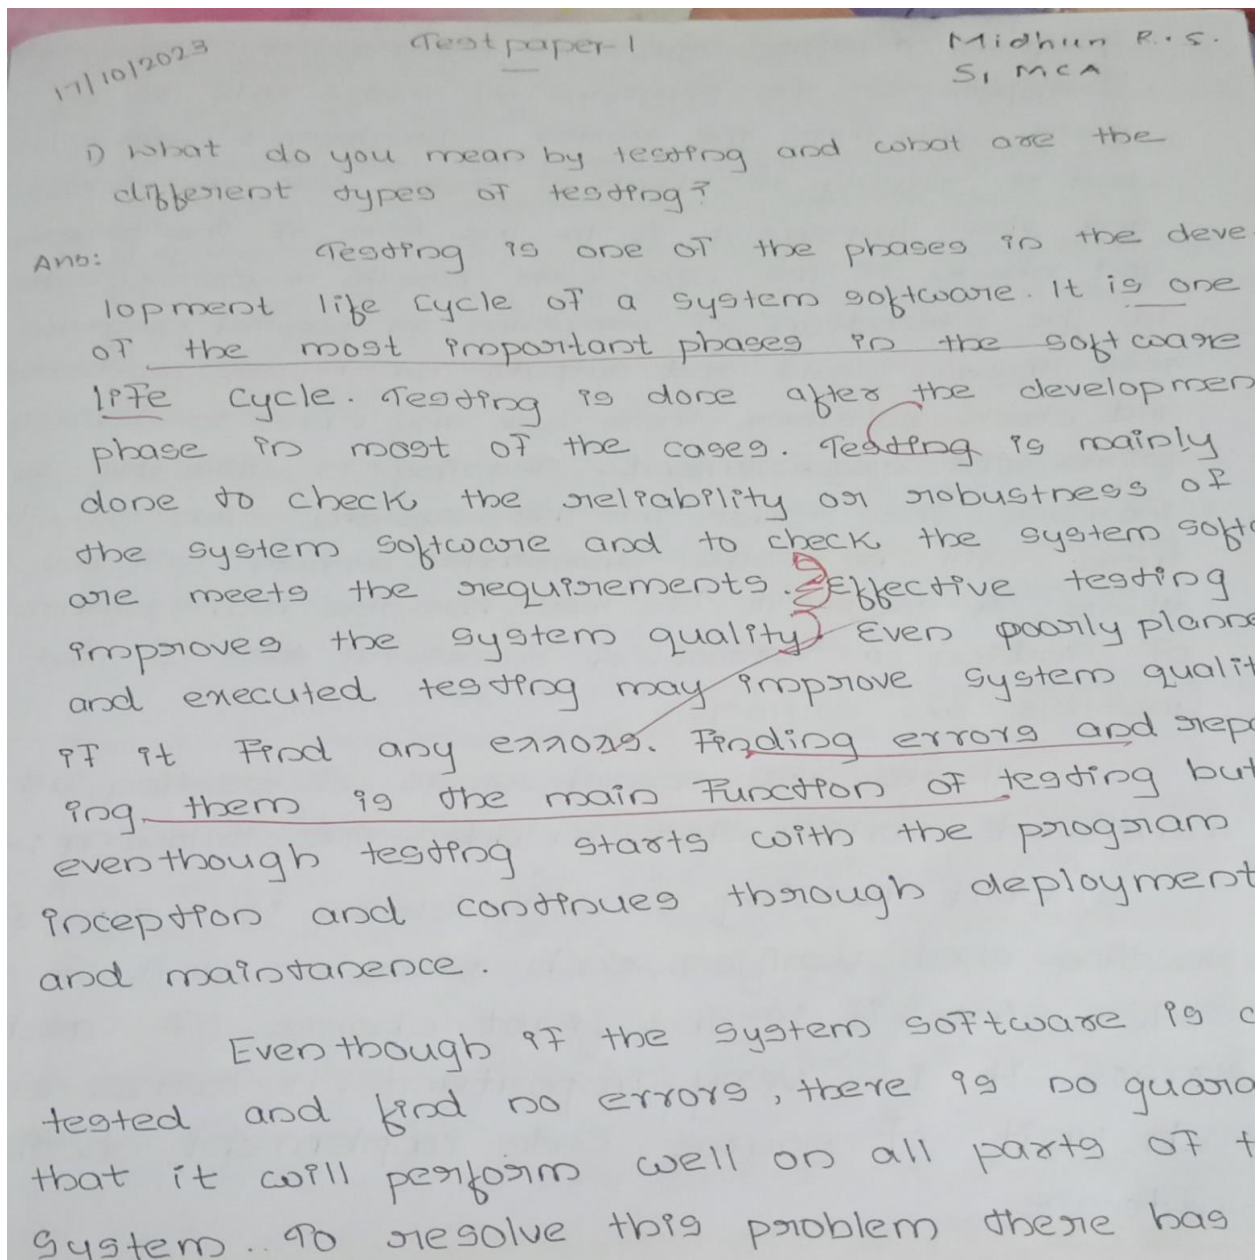 17/10/2023
Test paper-1
Midhun R.S.
S1 MCA
1) What do you mean by testing and what are the
different types of testing?
Ans: Testing is one of the phases in the deve
lopment life cycle of a system software. It is one
of the most important phases in the software
life cycle. Testing is done after the developmen
phase in most of the cases. Testing is mainly
done to check the reliability or robustness of
the system software and to check the system softw
are meets the requirements. Effective testing
improves the system quality. Even poorly planne
and executed testing may improve system qualit
if it find any errors. Finding errors and repo
ing them is the main function of testing but
eventhough testing starts with the program
inception and continues through deployment
and maintanence.
Eventhough if the system software is
tested and find no errors, there is no guara
that it will perform well on all parts of t
system. To resolve this problem there has